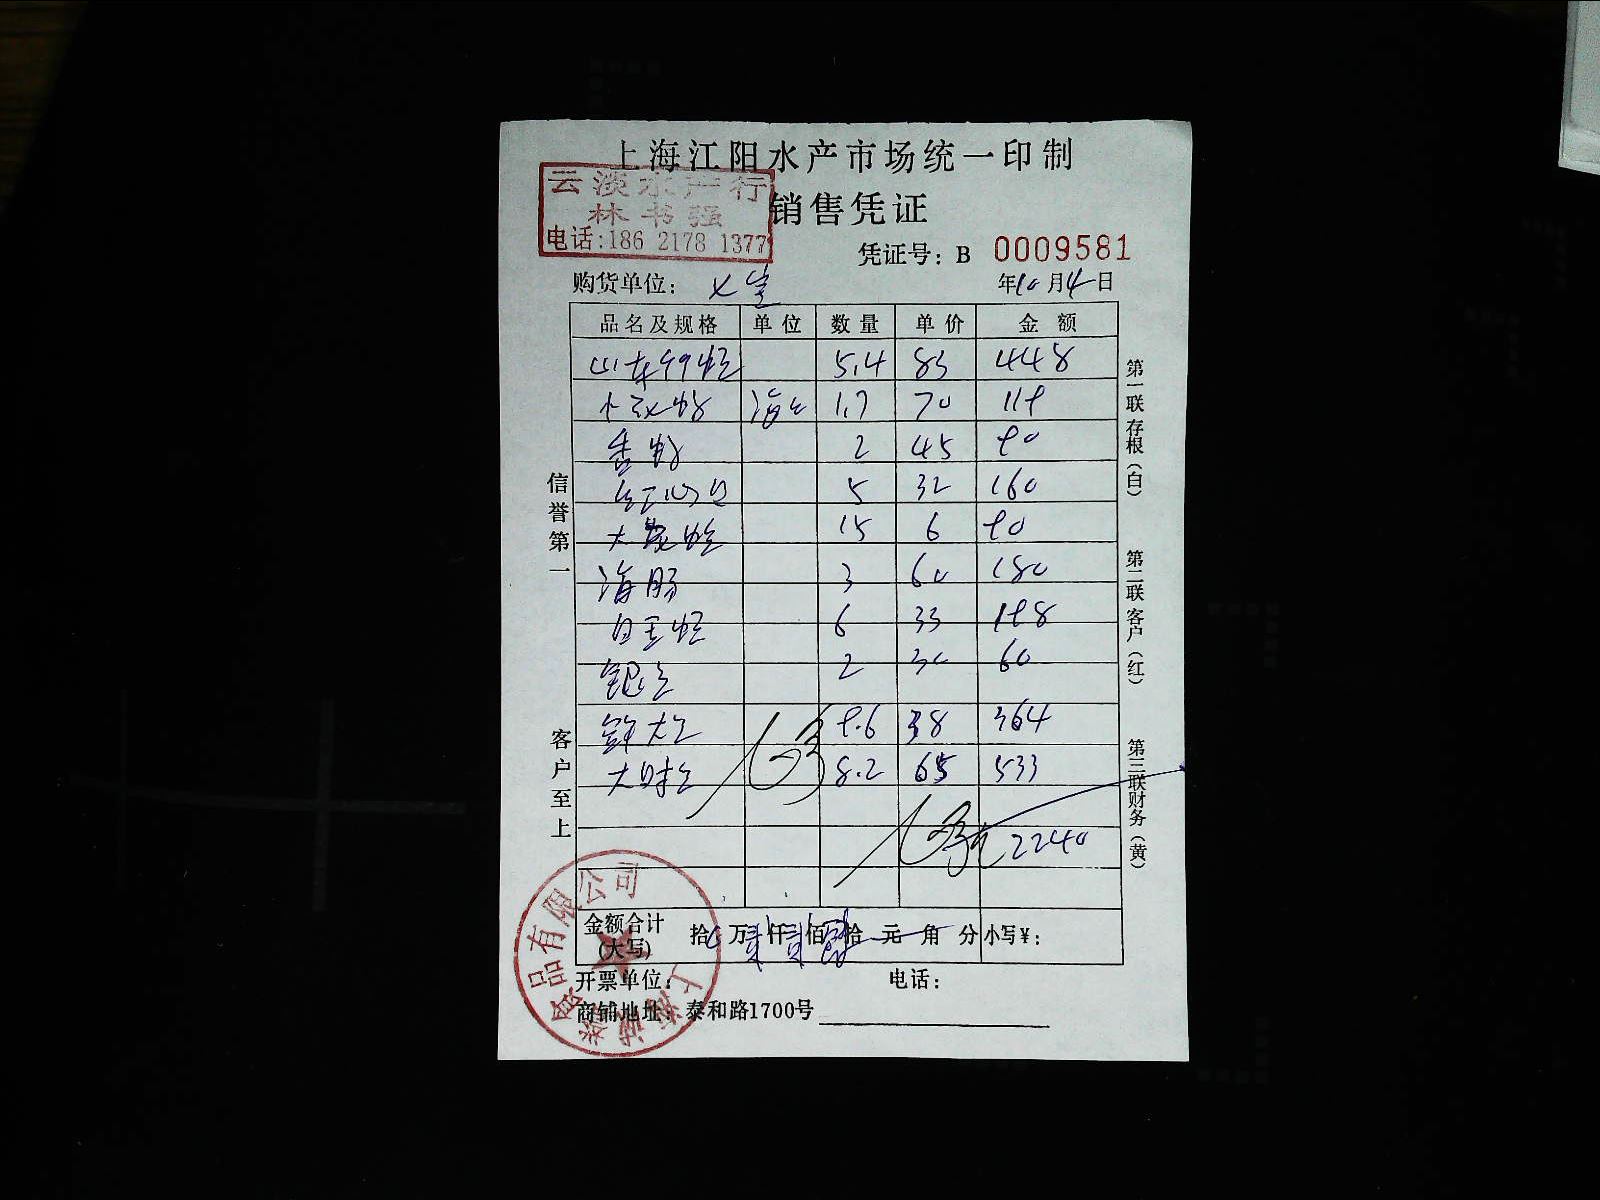 上海江阳水产市场统一印制
云淡水产行
林书强
电话:186 2178 1377
销售凭证
凭证号: B 0009581
购货单位:
年10月4日
品名及规格 单位 数量 单价 金额
山东 5.4 83 448
1.7 70 119
2 45 90
红 5 32 160
大 15 6 90
海肠 3 60 180
白 6 33 198
2 30 60
9.6 38 364
大 8.2 65 533
2240
金额合计(大写) 拾 万 仟 佰 拾 元 角 分 小写¥:
开票单位: 电话:
商铺地址: 泰和路1700号
信誉第一
客户至上
第一联存根(白)
第二联客户(红)
第三联财务(黄)
上海 食品有限公司